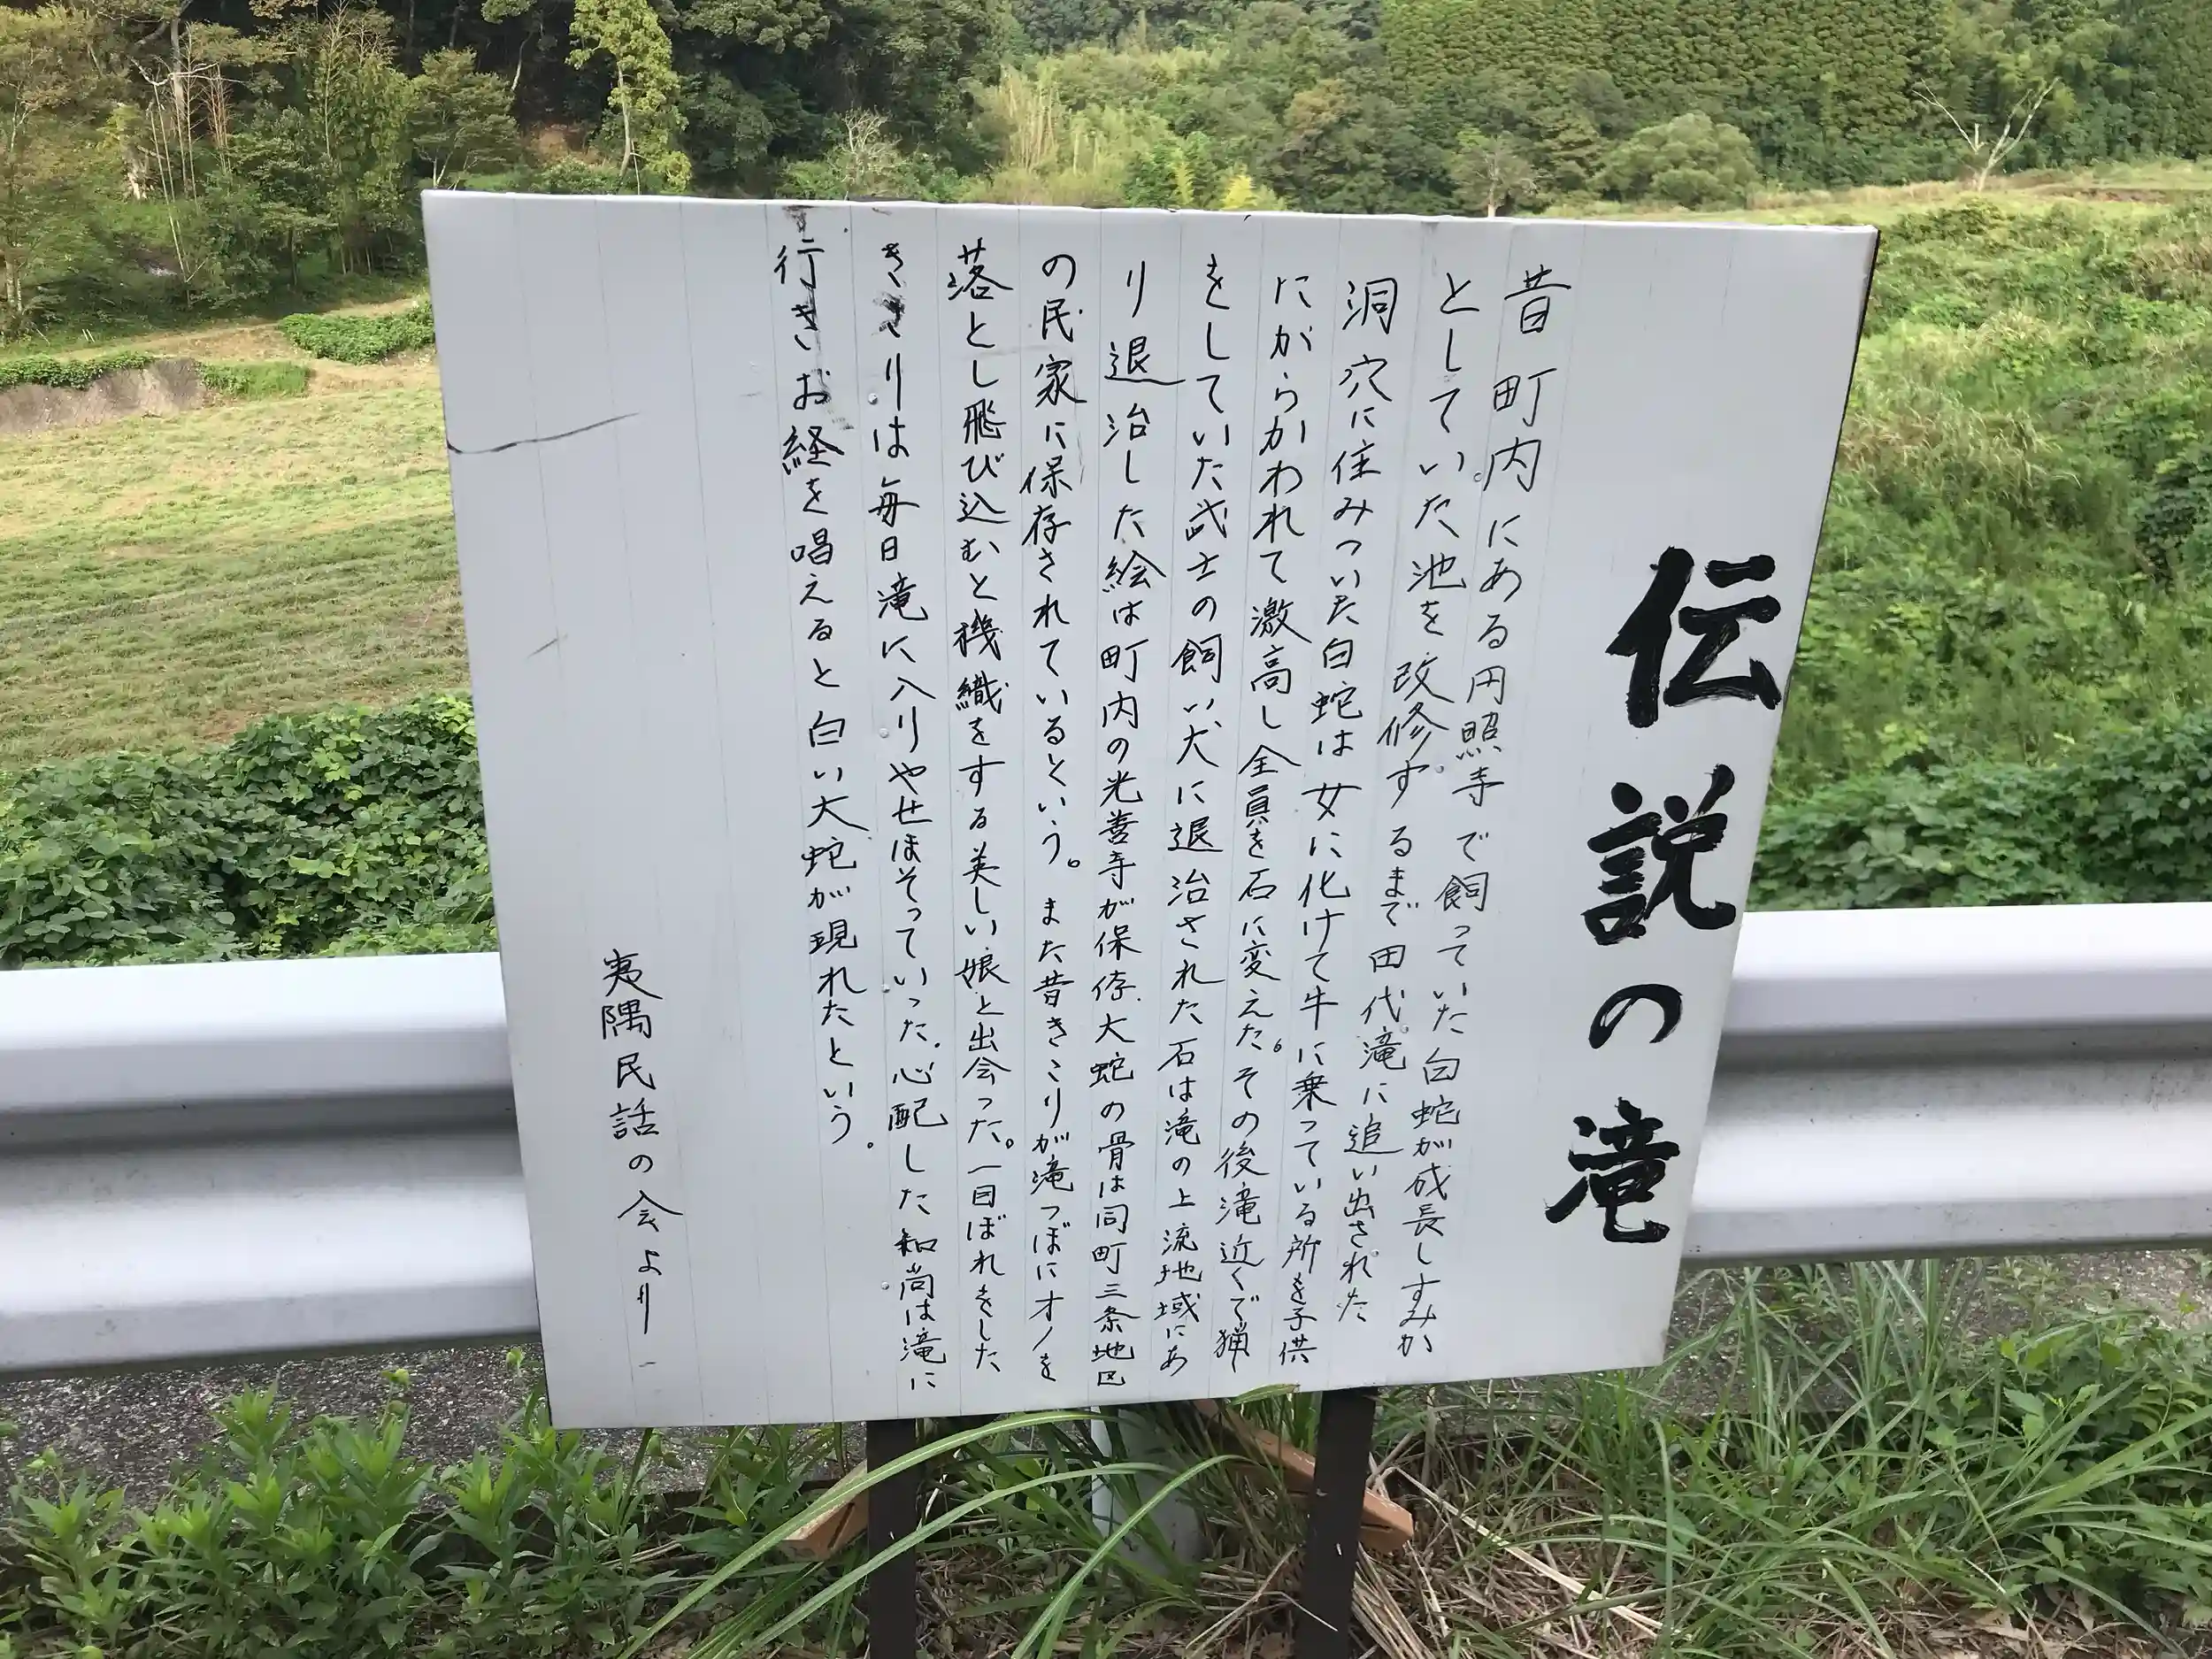 伝説の滝
昔町内にある円照寺で飼っていた白蛇が成長しすみか
としていた池を改修するまで田代滝に追い出された
洞穴に住みついた白蛇は女に化けて牛に乗っている所を子供
にがらかわれて激高し全員を石に変えた。その後滝近くで猟
をしていた武士の飼い犬に退治された石は滝の上流地域にあ
り退治した絵は町内の光善寺が保存大蛇の骨は同町三条地区
の民家に保存されているという。また昔きこりが滝つぼにオノを
落とし飛び込むと機織をする美しい娘と出会った。一目ぼれをした
きこりは毎日滝に入りやせほそっていった。心配した和尚は滝に
行きお経を唱えると白い大蛇が現れたという。
夷隅民話の会より